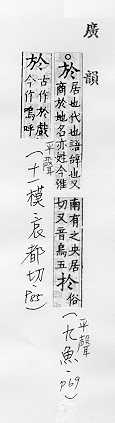 廣韻
。於居也代也語辭也又
商於地名亦姓今淮
南有之央居
切又音烏五
於俗
平聲
(九魚·p69)
於古作於戲
今作嗚呼
平聲
(十一模·哀都切·p85)